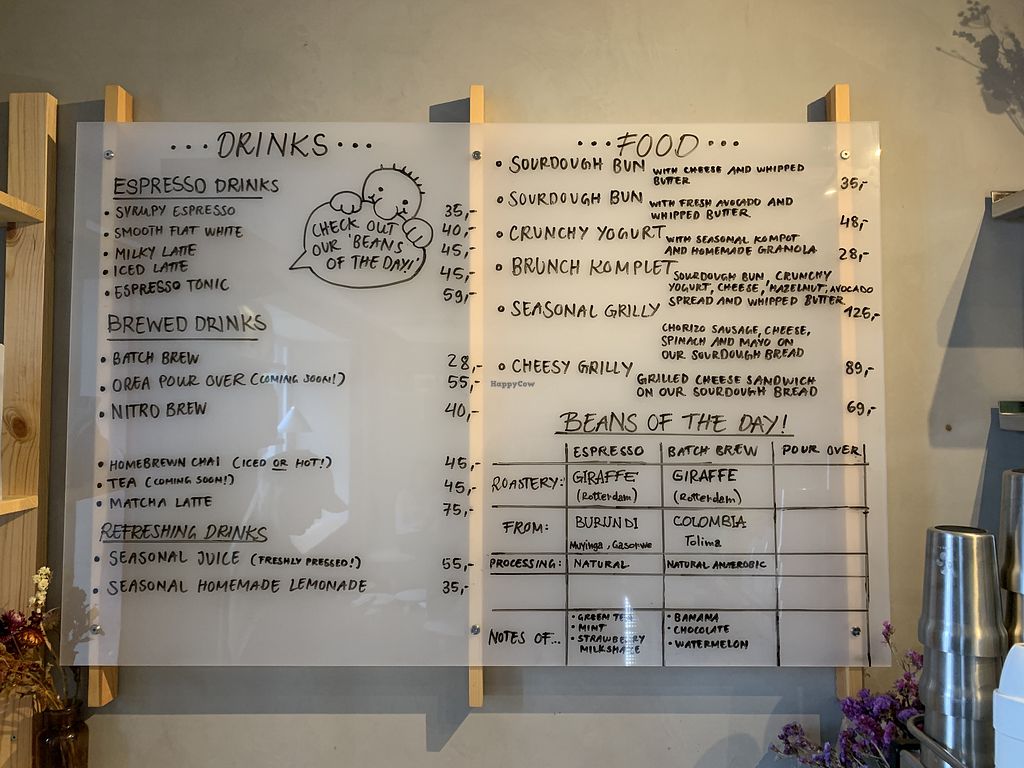 ... DRINKS ...
ESPRESSO DRINKS
• SYRUPY ESPRESSO 35,-
• SMOOTH FLAT WHITE 40,-
• MILKY LATTE 45,-
• ICED LATTE 45,-
• ESPRESSO TONIC 59,-
CHECK OUT
OUR 'BEANS
OF THE DAY!'
BREWED DRINKS
• BATCH BREW 28,-
• OREA POUR OVER (COMING SOON!) 55,-
• NITRO BREW 40,-
• HOMEBREWN CHAI (ICED OR HOT!) 45,-
• TEA (COMING SOON!) 45,-
• MATCHA LATTE 75,-
REFRESHING DRINKS
• SEASONAL JUICE (FRESHLY PRESSED!) 55,-
• SEASONAL HOMEMADE LEMONADE 35,-
... FOOD ...
• SOURDOUGH BUN WITH CHEESE AND WHIPPED
BUTTER 35,-
• SOURDOUGH BUN WITH FRESH AVOCADO AND
WHIPPED BUTTER 48,-
• CRUNCHY YOGURT WITH SEASONAL KOMPOT
AND HOMEMADE GRANOLA 28,-
• BRUNCH KOMPLET SOURDOUGH BUN, CRUNCHY
YOGURT, CHEESE, 'HAZELNUT, AVOCADO
SPREAD AND WHIPPED BUTTER 125,-
• SEASONAL GRILLY
CHORIZO SAUSAGE, CHEESE,
SPINACH AND MAYO ON
OUR SOURDOUGH BREAD 89,-
• CHEESY GRILLY GRILLED CHEESE SANDWICH
ON OUR SOURDOUGH BREAD 69,-
HappyCow
BEANS OF THE DAY!
ESPRESSO BATCH BREW POUR OVER
ROASTERY: GIRAFFE GIRAFFE
(Rotterdam) (Rotterdam)
FROM: BURUNDI COLOMBIA
Muyinga, Tolima
PROCESSING: NATURAL NATURAL ANAEROBIC
NOTES OF... • GREEN TEA • BANANA
• MINT • CHOCOLATE
• STRAWBERRY • WATERMELON
MILKSHAKE